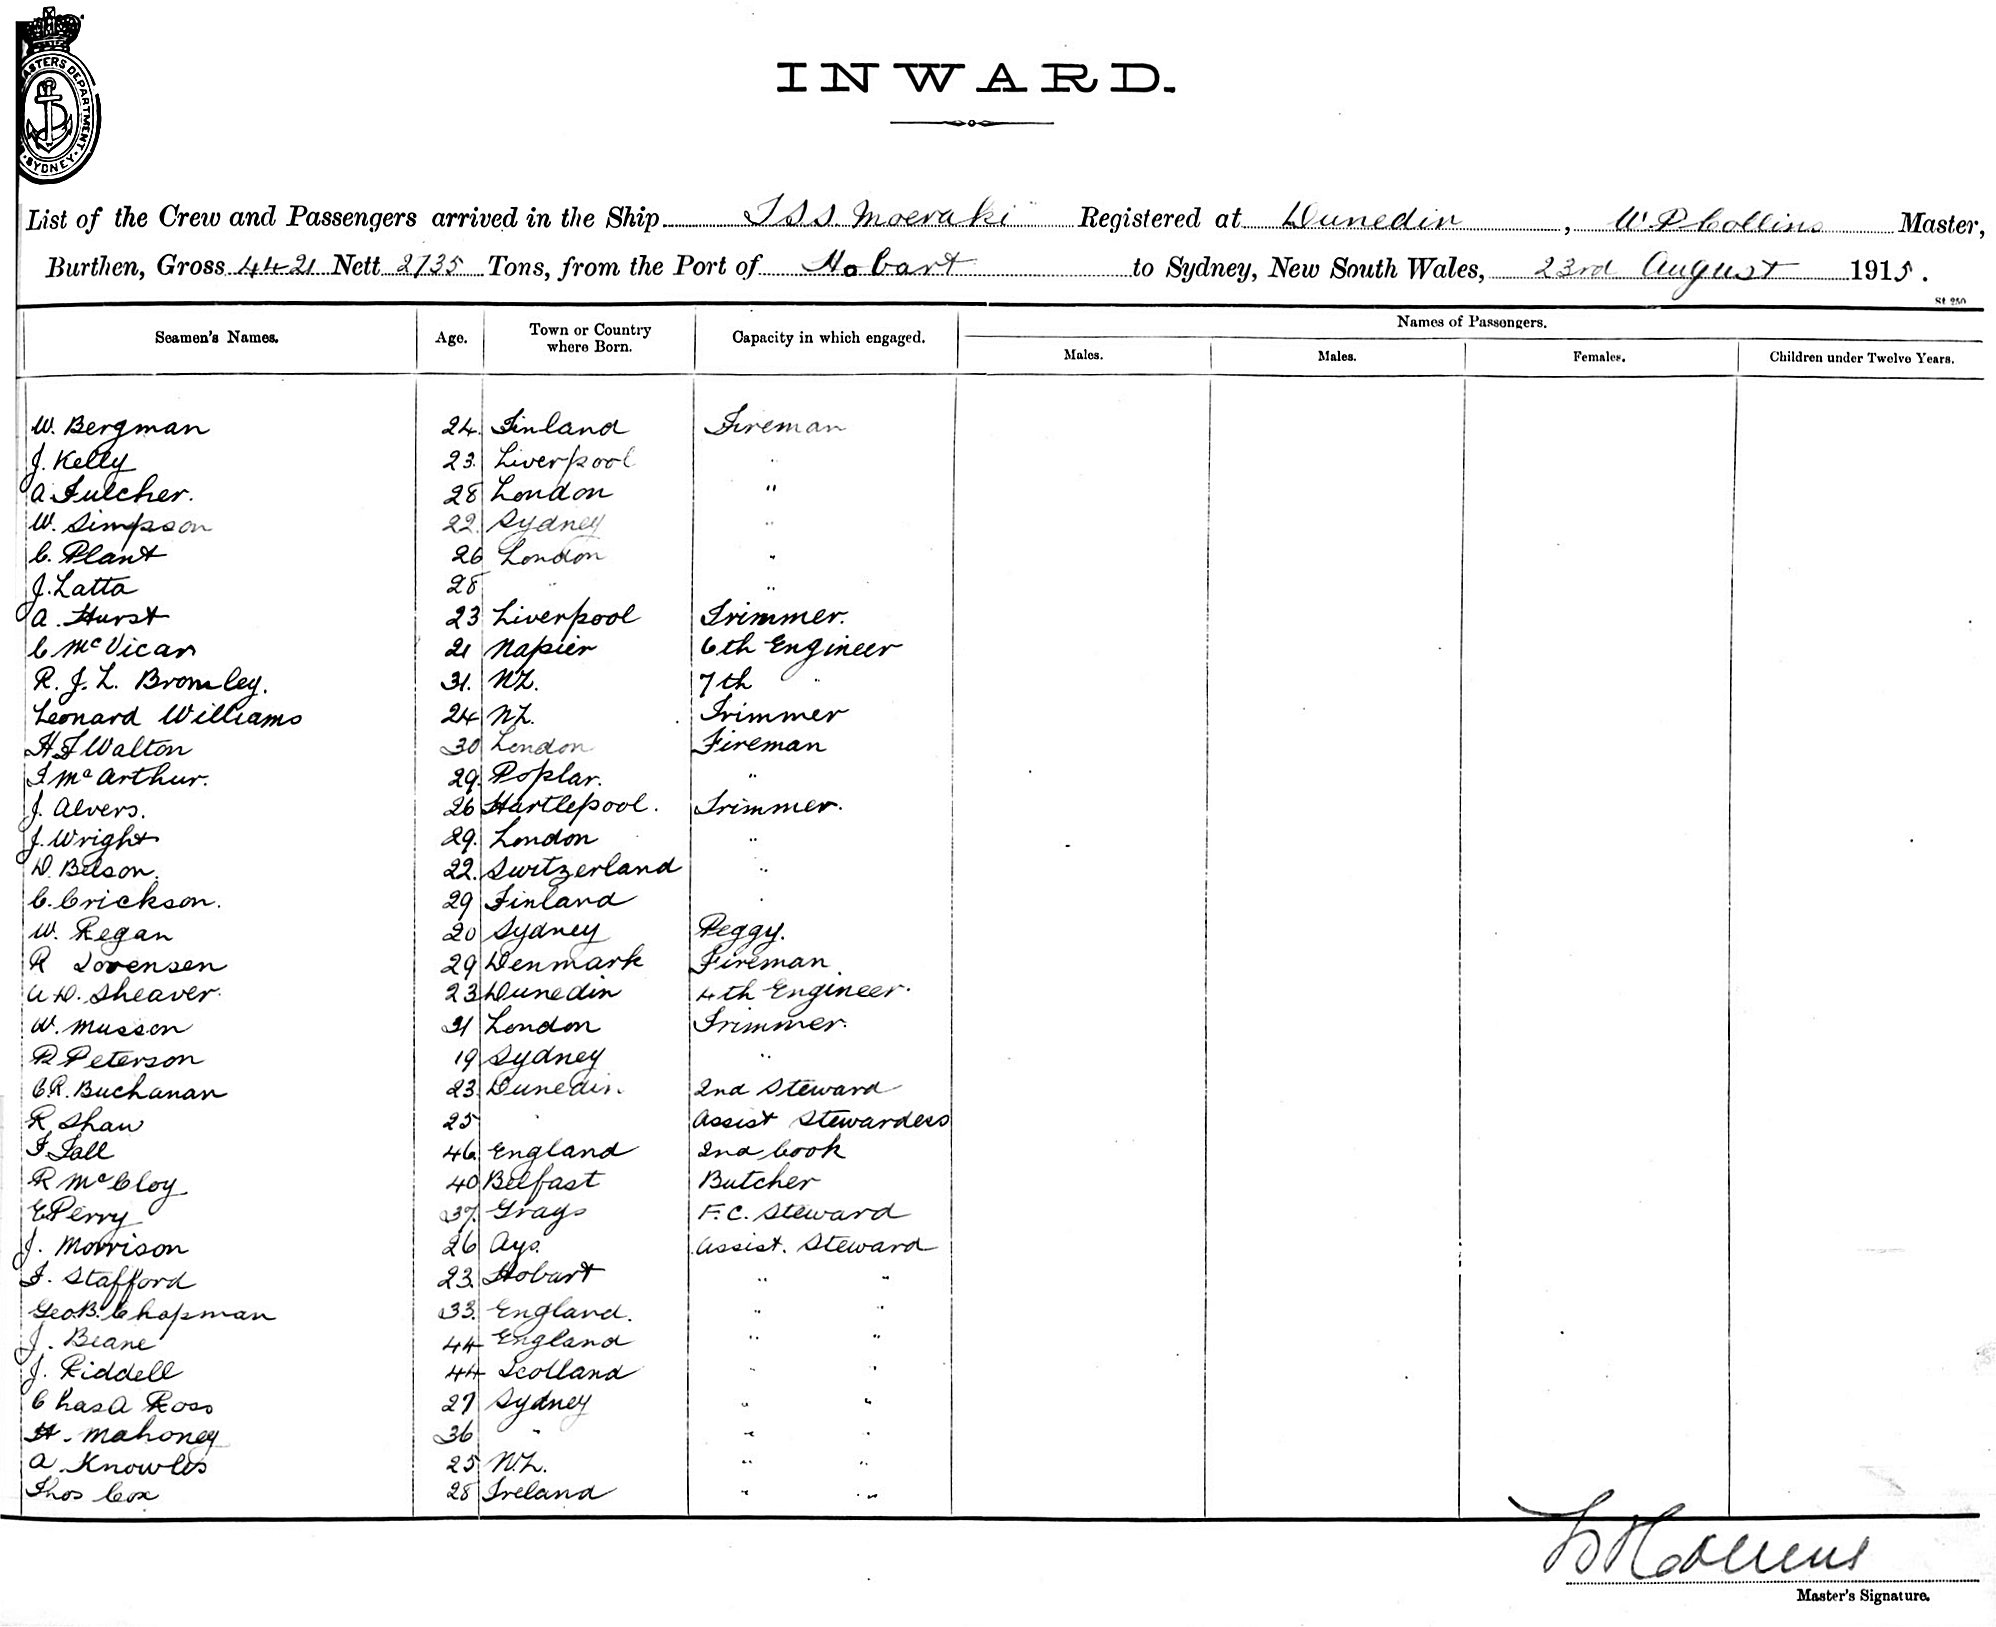 MASTERS DEPARTMENT. SYDNEY.
INWARD.
List of the Crew and Passengers arrived in the Ship T.S.S. Moeraki Registered at Dunedin, W. P Collins Master,
Burthen, Gross 4421 Nett 2735 Tons, from the Port of Hobart to Sydney, New South Wales, 23rd August 1915.
St 250
Seamen's Names. Age. Town or Country where Born. Capacity in which engaged. Names of Passengers.
Males. Males. Females. Children under Twelve Years.
W. Bergman 24. Finland Fireman
J. Kelly 23. Liverpool "
A Fulcher. 28 London "
W. Simpson 22. Sydney "
C. Plant 26 London "
J. Latta 28 " "
A. Hurst 23 Liverpool Trimmer.
C McVicar 21 Napier 6th Engineer
R. J. L. Bromley. 31. NZ. 7th "
Leonard Williams 24 NZ. Trimmer
H F Walton 30 London Fireman
J McArthur. 29. Poplar. "
J. Alvers. 26 Hartlepool. Trimmer.
J. Wright 29. London "
D. Belson. 22. Switzerland "
C. Erickson. 29 Finland "
W. Regan 20 Sydney Peggy.
R Sorensen 29 Denmark Fireman.
A D. Sheaver. 23 Dunedin 4th Engineer.
W. Musson 21 London Trimmer.
P Peterson 19 Sydney "
C R. Buchanan 23. Dunedin. 2nd Steward
R Shaw 25 " Assist Stewardess
F Fall 46. England 2nd Cook
R McCloy 40 Belfast Butcher
E Perry 37. Grays F.C. Steward
J. Morrison 26 Ays. Assist. Steward
F. Stafford 23. Hobart " "
Geo. B. Chapman 33. England. " "
J. Beane 44 England " "
J. Riddell 44 Scotland " "
Chas A Ross 27 Sydney " "
H. Mahoney 36 " " "
A Knowles 25 N.Z. " "
Thos Cox 28 Ireland " "
W P Collins
Master's Signature.